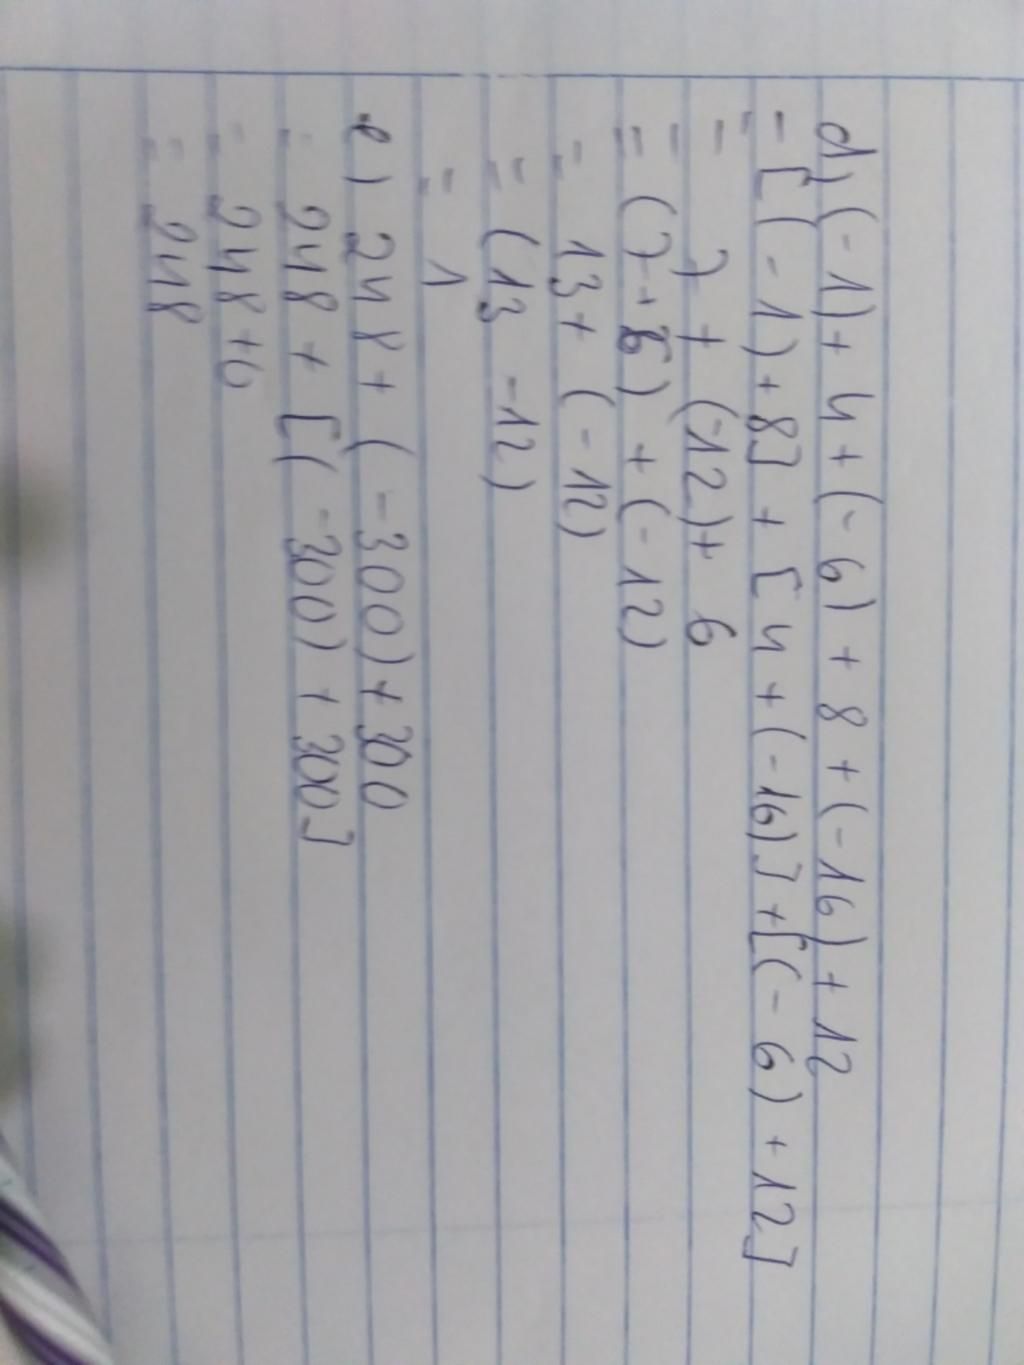 d) (-1) + 4 + (-6) + 8 + (-16) + 12
= [(-1) + 8] + [4 + (-16)] + [(-6) + 12]
= 7 + (-12) + 6
= (7 + 6) + (-12)
= 13 + (-12)
= (13 - 12)
= 1
e) 248 + (-300) + 300
= 248 + [(-300) + 300]
= 248 + 0
= 248